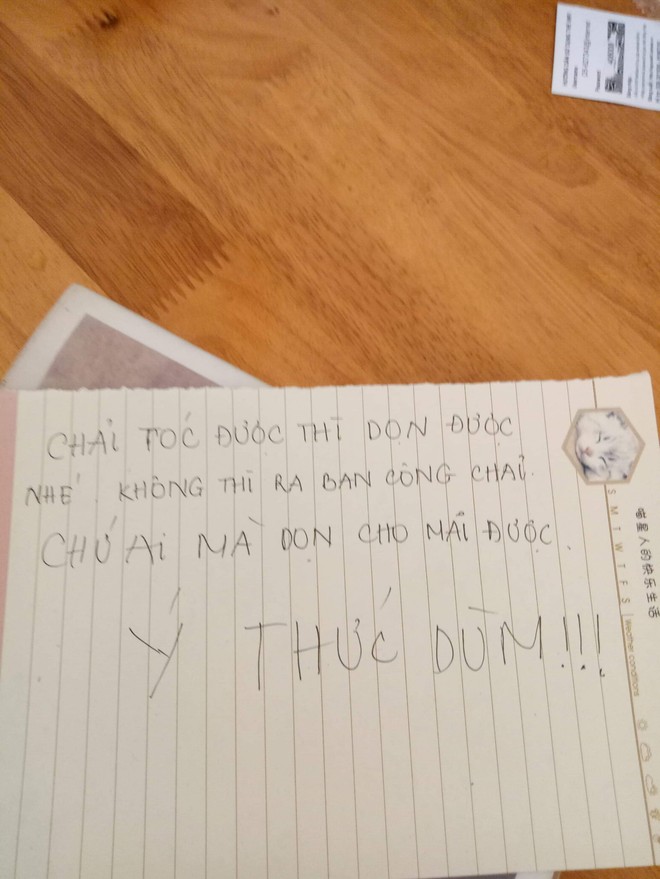 CHẢI TOC ĐƯỢC THÌ DỌN ĐƯỢC
NHÉ. KHÔNG THÌ RA BAN CÔNG CHẢI.
CHỨ AI MÀ DỌN CHO MÃI ĐƯỢC.
Ý THỨC DÙM!!!
喵星人的快乐生活
S M T W T F S Weather conditions
Password